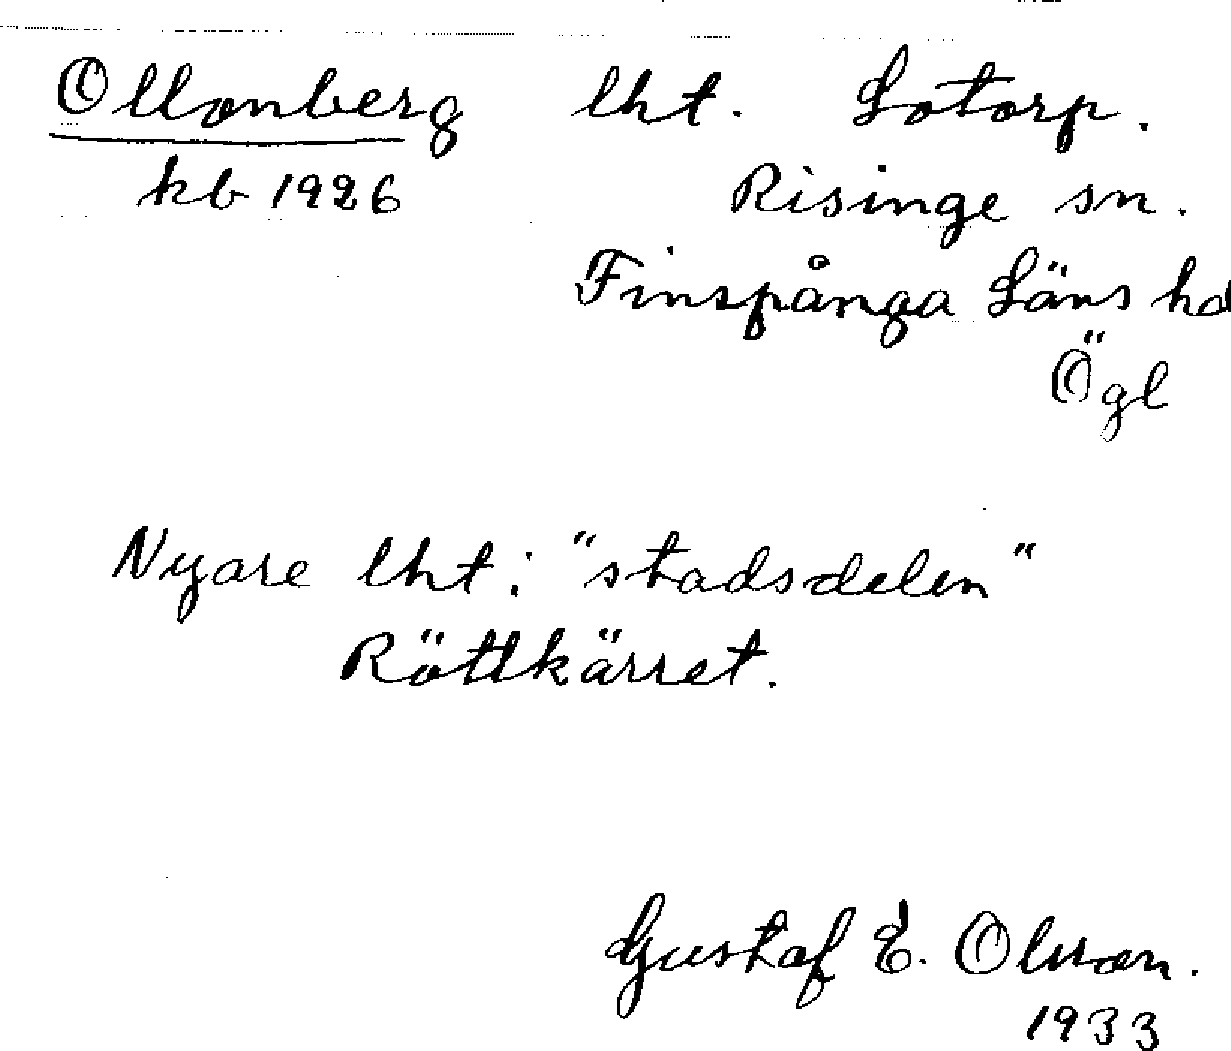 Ollonberg lht. Lotorp.
kb 1926 Risinge sn.
Finspånga Läns hd
Ögl
Nyare lht i "stadsdelen"
Röttkärret.
Gustaf E. Olsson.
1933